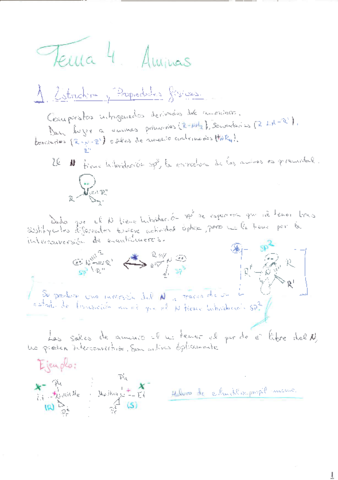 Tema 4 Aminas
1. Estructura y Propiedades físicas.
Compuestos nitrogenados derivados del amoniaco.
Dan lugar a aminas primarias (R-NH₂), secundarias (R-NH-R'),
terciarias (R-N-R') o sales de amonio cuaternarias
R''
El N tiene hibridación sp³, la estructura de las aminas es piramidal.
R R' R''
Dado que el N tiene hibridación sp³ se esperaría que si tienen tres
sustituyentes diferentes tuviese actividad óptica, pero no la tiene por la
interconversión de enantiómeros.
sp³ sp³ sp²
Se produce una inversión del N a través de un
estado de transición en el que el N tiene hibridación sp²
Las sales de amonio al no tener el par de e⁻ libre del N,
no pueden interconvertirse. Son activas ópticamente
Ejemplo:
X⁻ X⁻
Et Et
(R) (S)
1